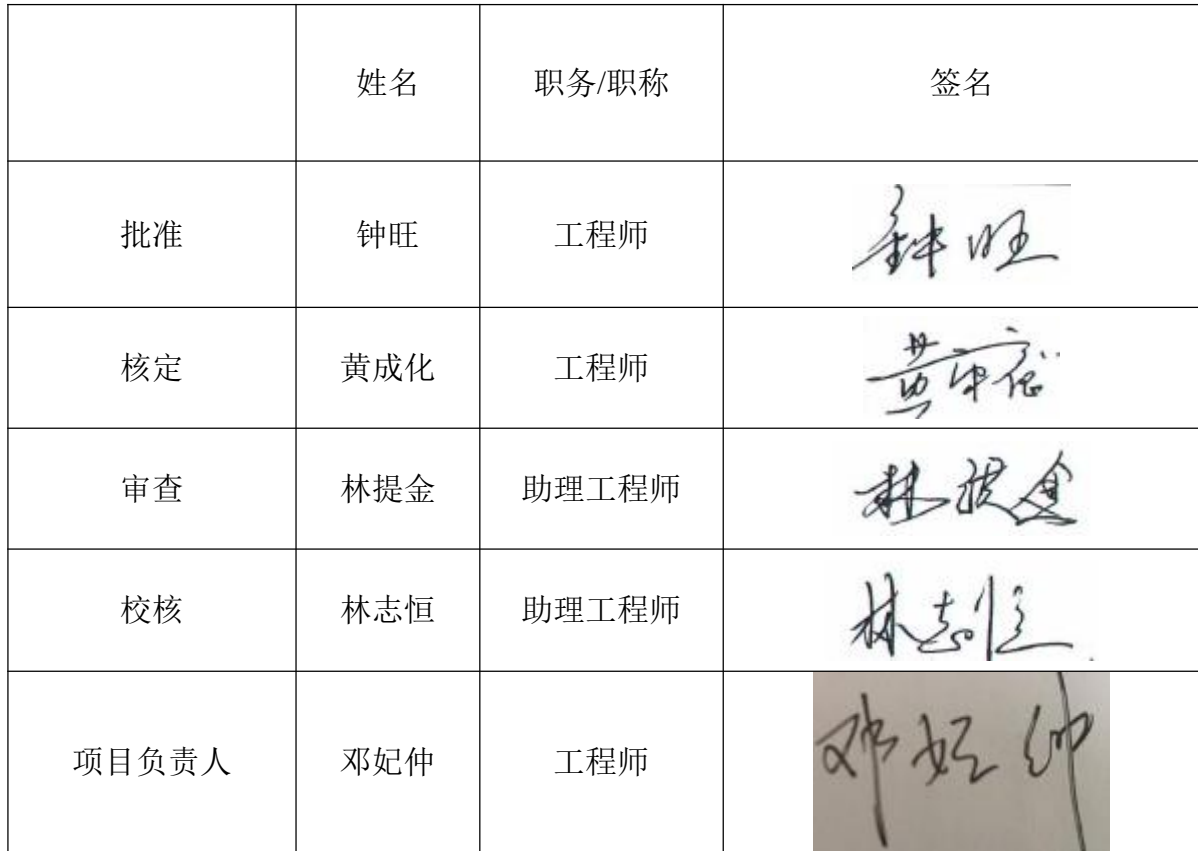 姓名 职务/职称 签名
批准 钟旺 工程师 钟旺
核定 黄成化 工程师
审查 林提金 助理工程师 林提金
校核 林志恒 助理工程师 林志恒
项目负责人 邓妃仲 工程师 邓妃仲